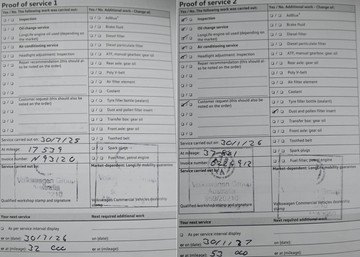 Proof of service 1
Yes / No The following work was carried out:
Yes / No Additional work - Change of:
Inspection
AdBlue®
Oil change service
Brake fluid
Longlife engine oil used (depending on the market)
Diesel filter
Air conditioning service
Diesel particulate filter
Headlight adjustment inspection
ATF, manual gearbox: gear oil
Repair recommendation (this should also be noted on the order)
Rear axle: gear oil
Poly V-belt
Air filter element
Coolant
Customer request (this should also be noted on the order)
Tyre filler bottle (sealant)
Dust and pollen filter insert
Transfer box: gear oil
Front axle: gear oil
Service carried out on: 30/7/25
Toothed belt
At mileage 17539
Spark plugs
Invoice number 93120
Fuel filter, petrol engine
Service carried out by:
Market-dependent: Longlife mobility guarantee
Qualified workshop stamp and signature
Volkswagen Commercial Vehicles mobility stamp
Your next service
Next required additional work
As per service interval display
or on (date) 30/7/26
on (date)
or at (mileage)
at (mileage)
Proof of service 2
Yes / No The following work was carried out:
Yes / No Additional work - Change of:
Inspection
AdBlue®
Oil change service
Brake fluid
Longlife engine oil used (depending on the market)
Diesel filter
Air conditioning service
Diesel particulate filter
Headlight adjustment inspection
ATF, manual gearbox: gear oil
Repair recommendation (this should also be noted on the order)
Rear axle: gear oil
Poly V-belt
Air filter element
Coolant
Customer request (this should also be noted on the order)
Tyre filler bottle (sealant)
Dust and pollen filter insert
Transfer box: gear oil
Front axle: gear oil
Service carried out on: 30/1/26
Toothed belt
At mileage
Spark plugs
Invoice number
Fuel filter, petrol engine
Service carried out by:
Market-dependent: Longlife mobility guarantee
Qualified workshop stamp and signature
Volkswagen Commercial Vehicles mobility stamp
Your next service
Next required additional work
As per service interval display
or on (date) 30/1/27
on (date)
or at (mileage)
at (mileage)